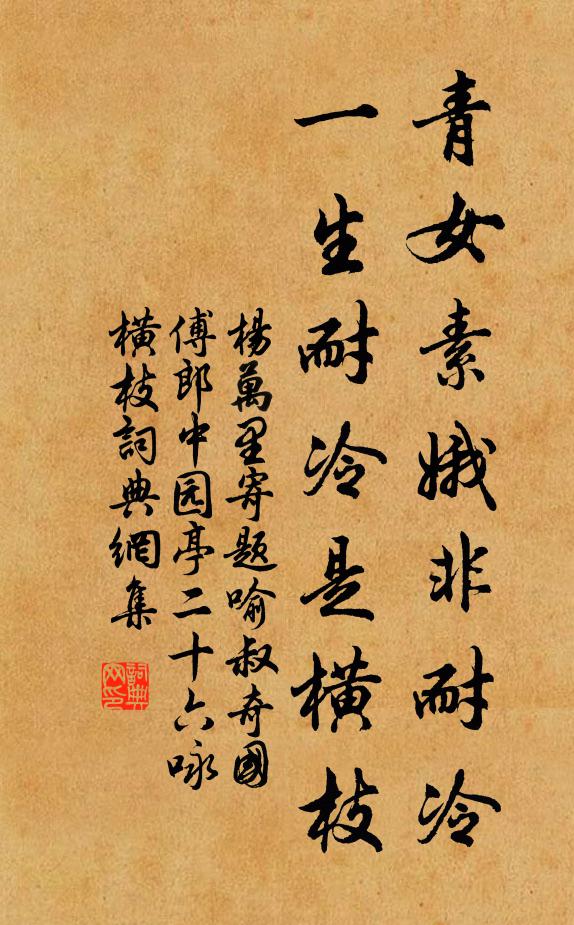 青女素娥非耐冷
一生耐冷是橫枝
楊萬里寄題喻叔奇國
傅郎中园亭二十六咏
橫枝詞典網集
詞典
网印